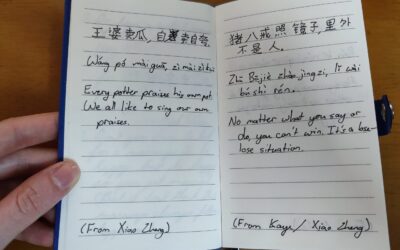 王婆卖瓜,自卖自夸。
Wáng pó mài guā, zì mài zì kuā
Every potter praises his own pot.
We all like to sing our own
praises.
(From Xiao Zheng)
猪八戒照镜子,里外
不是人。
Zhū Bājiè zhào jìngzi, lǐ wài
bú shì rén.
No matter what you say or
do, you can't win. It's a lose-
lose situation.
(From Kayu / Xiao Zheng)